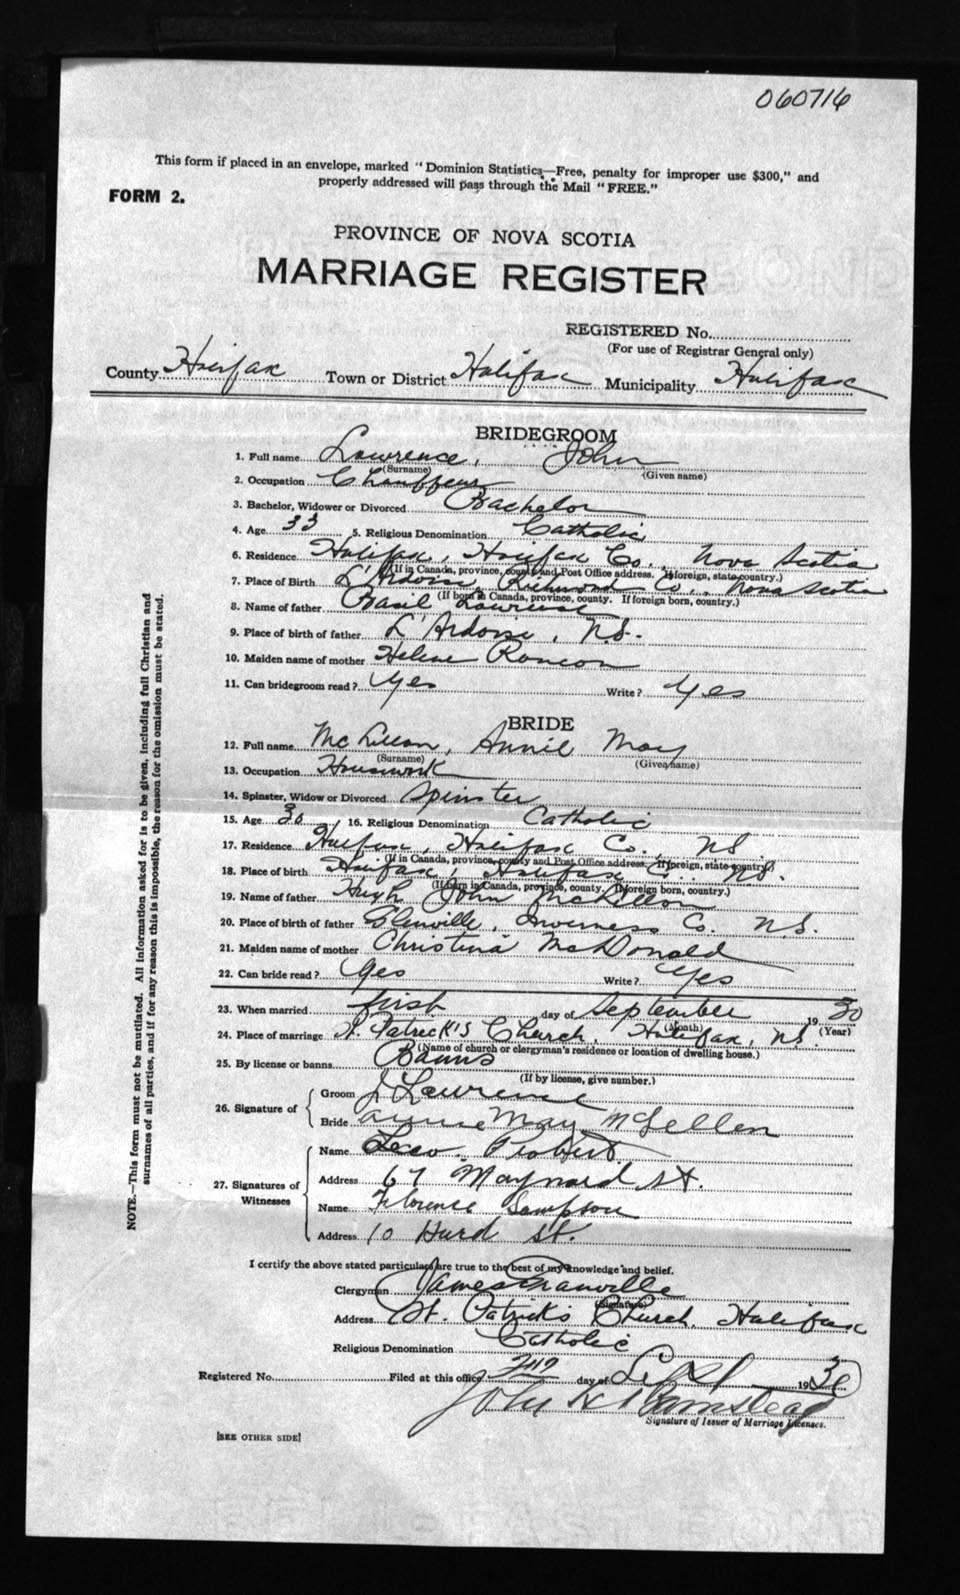 060716
This form if placed in an envelope, marked "Dominion Statistics—Free, penalty for improper use $300," and
properly addressed will pass through the Mail "FREE."
FORM 2.
PROVINCE OF NOVA SCOTIA
MARRIAGE REGISTER
REGISTERED No.
(For use of Registrar General only)
County Halifax Town or District Halifax Municipality Halifax
BRIDEGROOM
1. Full name Lawrence, John
(Surname) (Given name)
2. Occupation Chauffeur
3. Bachelor, Widower or Divorced Bachelor
4. Age 33 5. Religious Denomination Catholic
6. Residence Halifax, Halifax Co., Nova Scotia
(If in Canada, province, county and Post Office address. If foreign, state country.)
7. Place of Birth L'Ardoise, Richmond Co., Nova Scotia
(If born in Canada, province, county. If foreign born, country.)
8. Name of father Basil Lawrence
9. Place of birth of father L'Ardoise, N.S.
10. Maiden name of mother Helene
11. Can bridegroom read? Yes Write? Yes
BRIDE
12. Full name McLellan, Annie May
(Surname) (Given name)
13. Occupation Housework
14. Spinster, Widow or Divorced Spinster
15. Age 30 16. Religious Denomination Catholic
17. Residence Halifax, Halifax Co. NS.
(If in Canada, province, county and Post Office address. If foreign, state country.)
18. Place of birth Halifax, Halifax Co. N.S.
(If born in Canada, province, county. If foreign born, country.)
19. Name of father Hugh John McLellan
20. Place of birth of father Glenville, Inverness Co. N.S.
21. Maiden name of mother Christina McDonald
22. Can bride read? Yes Write? Yes
23. When married first day of September 1930
(Month) (Year)
24. Place of marriage St. Patrick's Church, Halifax, N.S.
(Name of church or clergyman's residence or location of dwelling house.)
25. By license or banns Banns
(If by license, give number.)
26. Signature of
Groom J Lawrence
Bride Annie May McLellan
27. Signatures of Witnesses
Name Leo
Address 67 Maynard St.
Name Florence Sampson
Address 10 Hurd St.
I certify the above stated particulars are true to the best of my knowledge and belief.
Clergyman James Granville
(Signature)
Address St. Patrick's Church, Halifax
Religious Denomination Catholic
Registered No. Filed at this office day of Sept 1930
John
Signature of Issuer of Marriage Licenses.
[SEE OTHER SIDE]
NOTE.—This form must not be mutilated. All information asked for is to be given, including full Christian and
surnames of all parties, and if for any reason this is impossible, the reason for the omission must be stated.